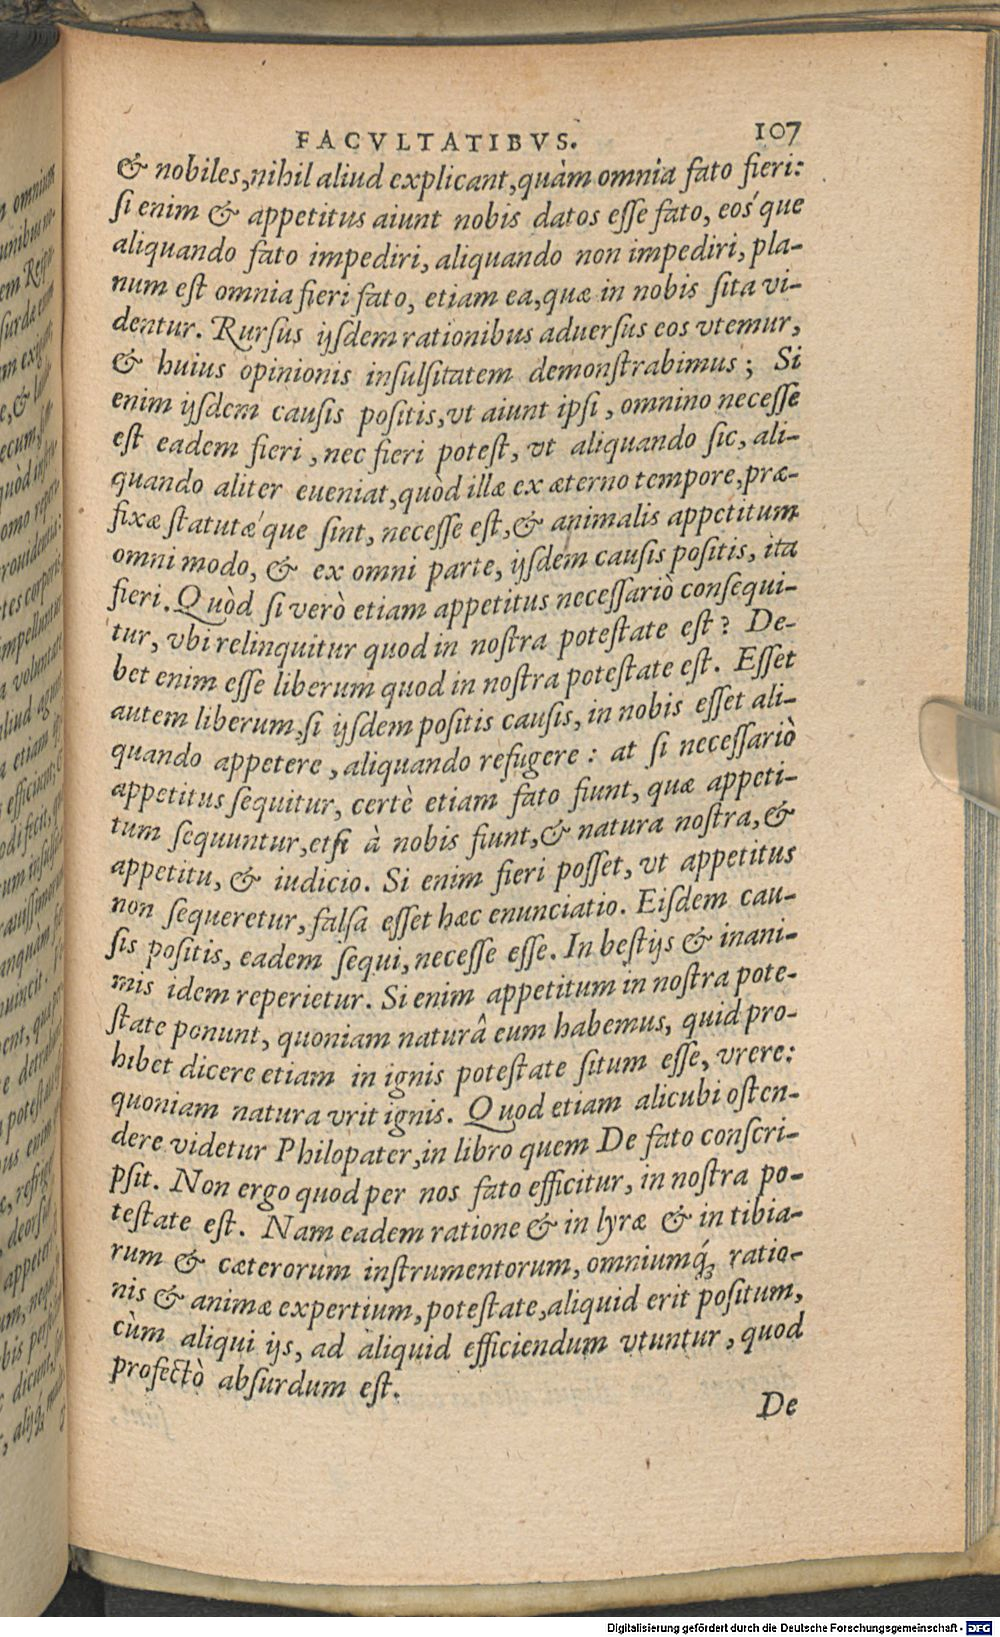 FACVLTATIBVS. 107
& nobiles, nihil aliud explicant, quàm omnia fato fieri:
ſi enim & appetitus aiunt nobis datos eſſe fato, eos´que
aliquando fato impediri, aliquando non impediri, pla-
num eſt omnia fieri fato, etiam ea, quæ in nobis ſita vi-
dentur. Rurſus ijſdem rationibus aduerſus eos vtemur,
& huius opinionis inſulſitatem demonſtrabimus; Si
enim ijſdem cauſis poſitis, vt aiunt ipſi, omnino neceſſe
eſt eadem fieri, nec fieri poteſt, vt aliquando ſic, ali-
quando aliter eueniat, quòd illæ ex æterno tempore, præ-
fixæ ſtatutæ´que ſint, neceſſe eſt, & animalis appetitum
omni modo, & ex omni parte, ijſdem cauſis poſitis, ita
fieri. Quòd ſi verò etiam appetitus neceſſariò conſequi-
tur, vbi relinquitur quod in noſtra poteſtate eſt? De-
bet enim eſſe liberum quod in noſtra poteſtate eſt. Eſſet
autem liberum, ſi ijſdem poſitis cauſis, in nobis eſſet ali-
quando appetere, aliquando refugere: at ſi neceſſariò
appetitus ſequitur, certè etiam fato fiunt, quæ appeti-
tum ſequuntur, etſi à nobis fiunt, & natura noſtra, &
appetitu, & iudicio. Si enim fieri poſſet, vt appetitus
non ſequeretur, falſa eſſet hæc enunciatio. Eiſdem cau-
ſis poſitis, eadem ſequi, neceſſe eſſe. In beſtijs & inani-
mis idem reperietur. Si enim appetitum in noſtra pote-
ſtate ponunt, quoniam naturâ eum habemus, quid pro-
hibet dicere etiam in ignis poteſtate ſitum eſſe, vrere:
quoniam natura vrit ignis. Quod etiam alicubi oſten-
dere videtur Philopater, in libro quem De fato conſcri-
pſit. Non ergo quod per nos fato efficitur, in noſtra po-
teſtate eſt. Nam eadem ratione & in lyræ & in tibia-
rum & cæterorum inſtrumentorum, omniumq́; ratio-
nis & animæ expertium, poteſtate, aliquid erit poſitum,
cùm aliqui ijs, ad aliquid efficiendum vtuntur, quod
profectò abſurdum eſt.
De
Digitalisierung gefördert durch die Deutsche Forschungsgemeinschaft - DFG